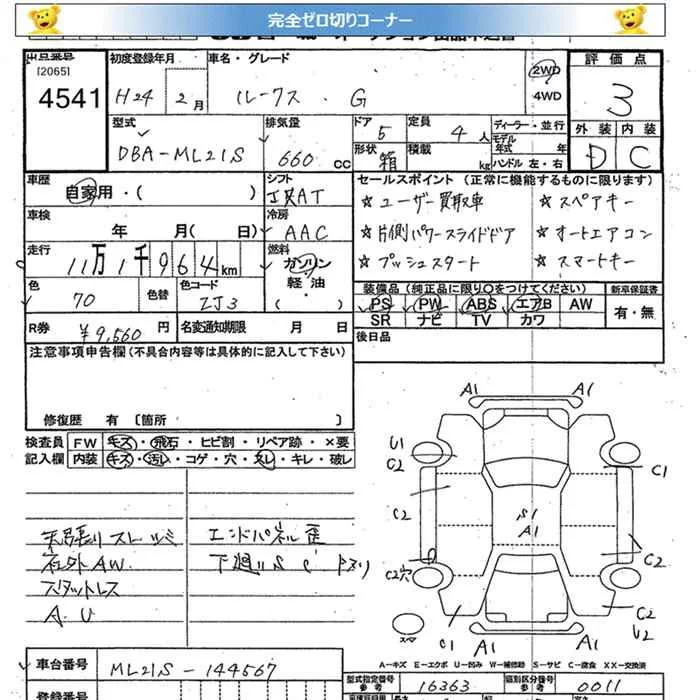 完全ゼロ切りコーナー
出品番号
[2065]
4541
初度登録年月
H24 2月
車名・グレード
ルークス . G
2WD
4WD
評価点
3
外装 内装
D C
型式
DBA-ML21S
排気量
660 CC
ドア 5
定員 4人
ディーラー・並行
モデル年式 年
形状 箱
積載 kg
ハンドル 左・右
車歴
自家用・( )
シフト
セールスポイント (正常に機能するものに限ります)
☆ ユーザー買取車 ☆ スペアキー
☆ 片側パワースライドドア ☆ オートエアコン
☆ プッシュスタート ☆ スマートキー
車検
年 月( 日)
冷房
AAC
走行
11万1千964km
燃料
ガソリン
軽・油
( )
色
70
色替
色コード
ZJ3
装備品 (純正品に限り○をつけてください)
新車保証書
PS PW ABS エアB AW
SR ナビ TV カワ
有・無
R券 ¥9,560 円
名変通知期限 月 日
後日品
注意事項申告欄(不具合内容等は具体的に記入して下さい)
修復歴 有 〔箇所 〕
検査員 FW キズ・飛石・ヒビ割・リペア跡・×要
記入欄 内装 キズ・汚れ・コゲ・穴・スレ・キレ・破レ
社外AW
スタットレス
A.U
エンドパネル歪
A1 A1
U1
C2
C1
C2
S1
A1
C2
C2穴
C2
U2
C1 A1
スマ
A-キズ E-エクボ U-凹み W-補修跡 S-サビ C-腐食 XX-交換済
車台番号
ML21S-144567
型式指定番号
参考
16363
類別区分番号
参考
0011
登録番号